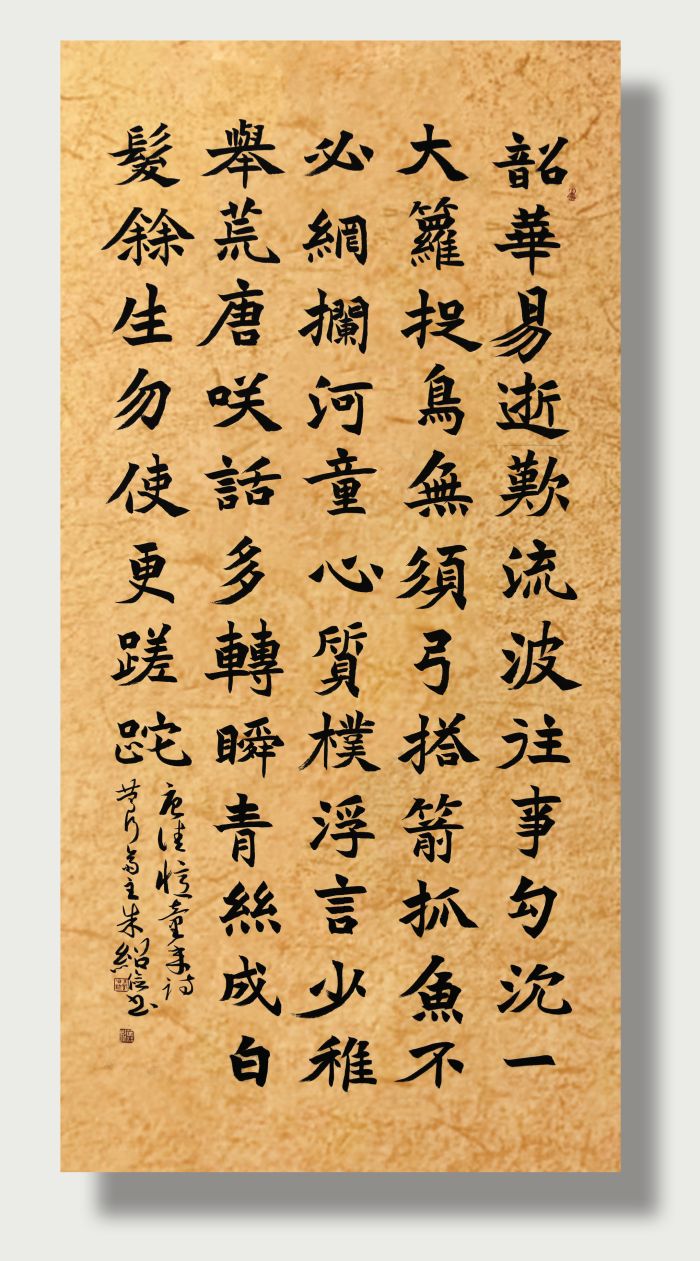 韶華易逝歎流波往事勾沈一
大籮捉鳥無須弓搭箭抓魚不
必網攔河童心質樸浮言少稚
舉荒唐咲話多轉瞬青絲成白
髮餘生勿使更蹉跎
憶童年詩
主朱紹信書